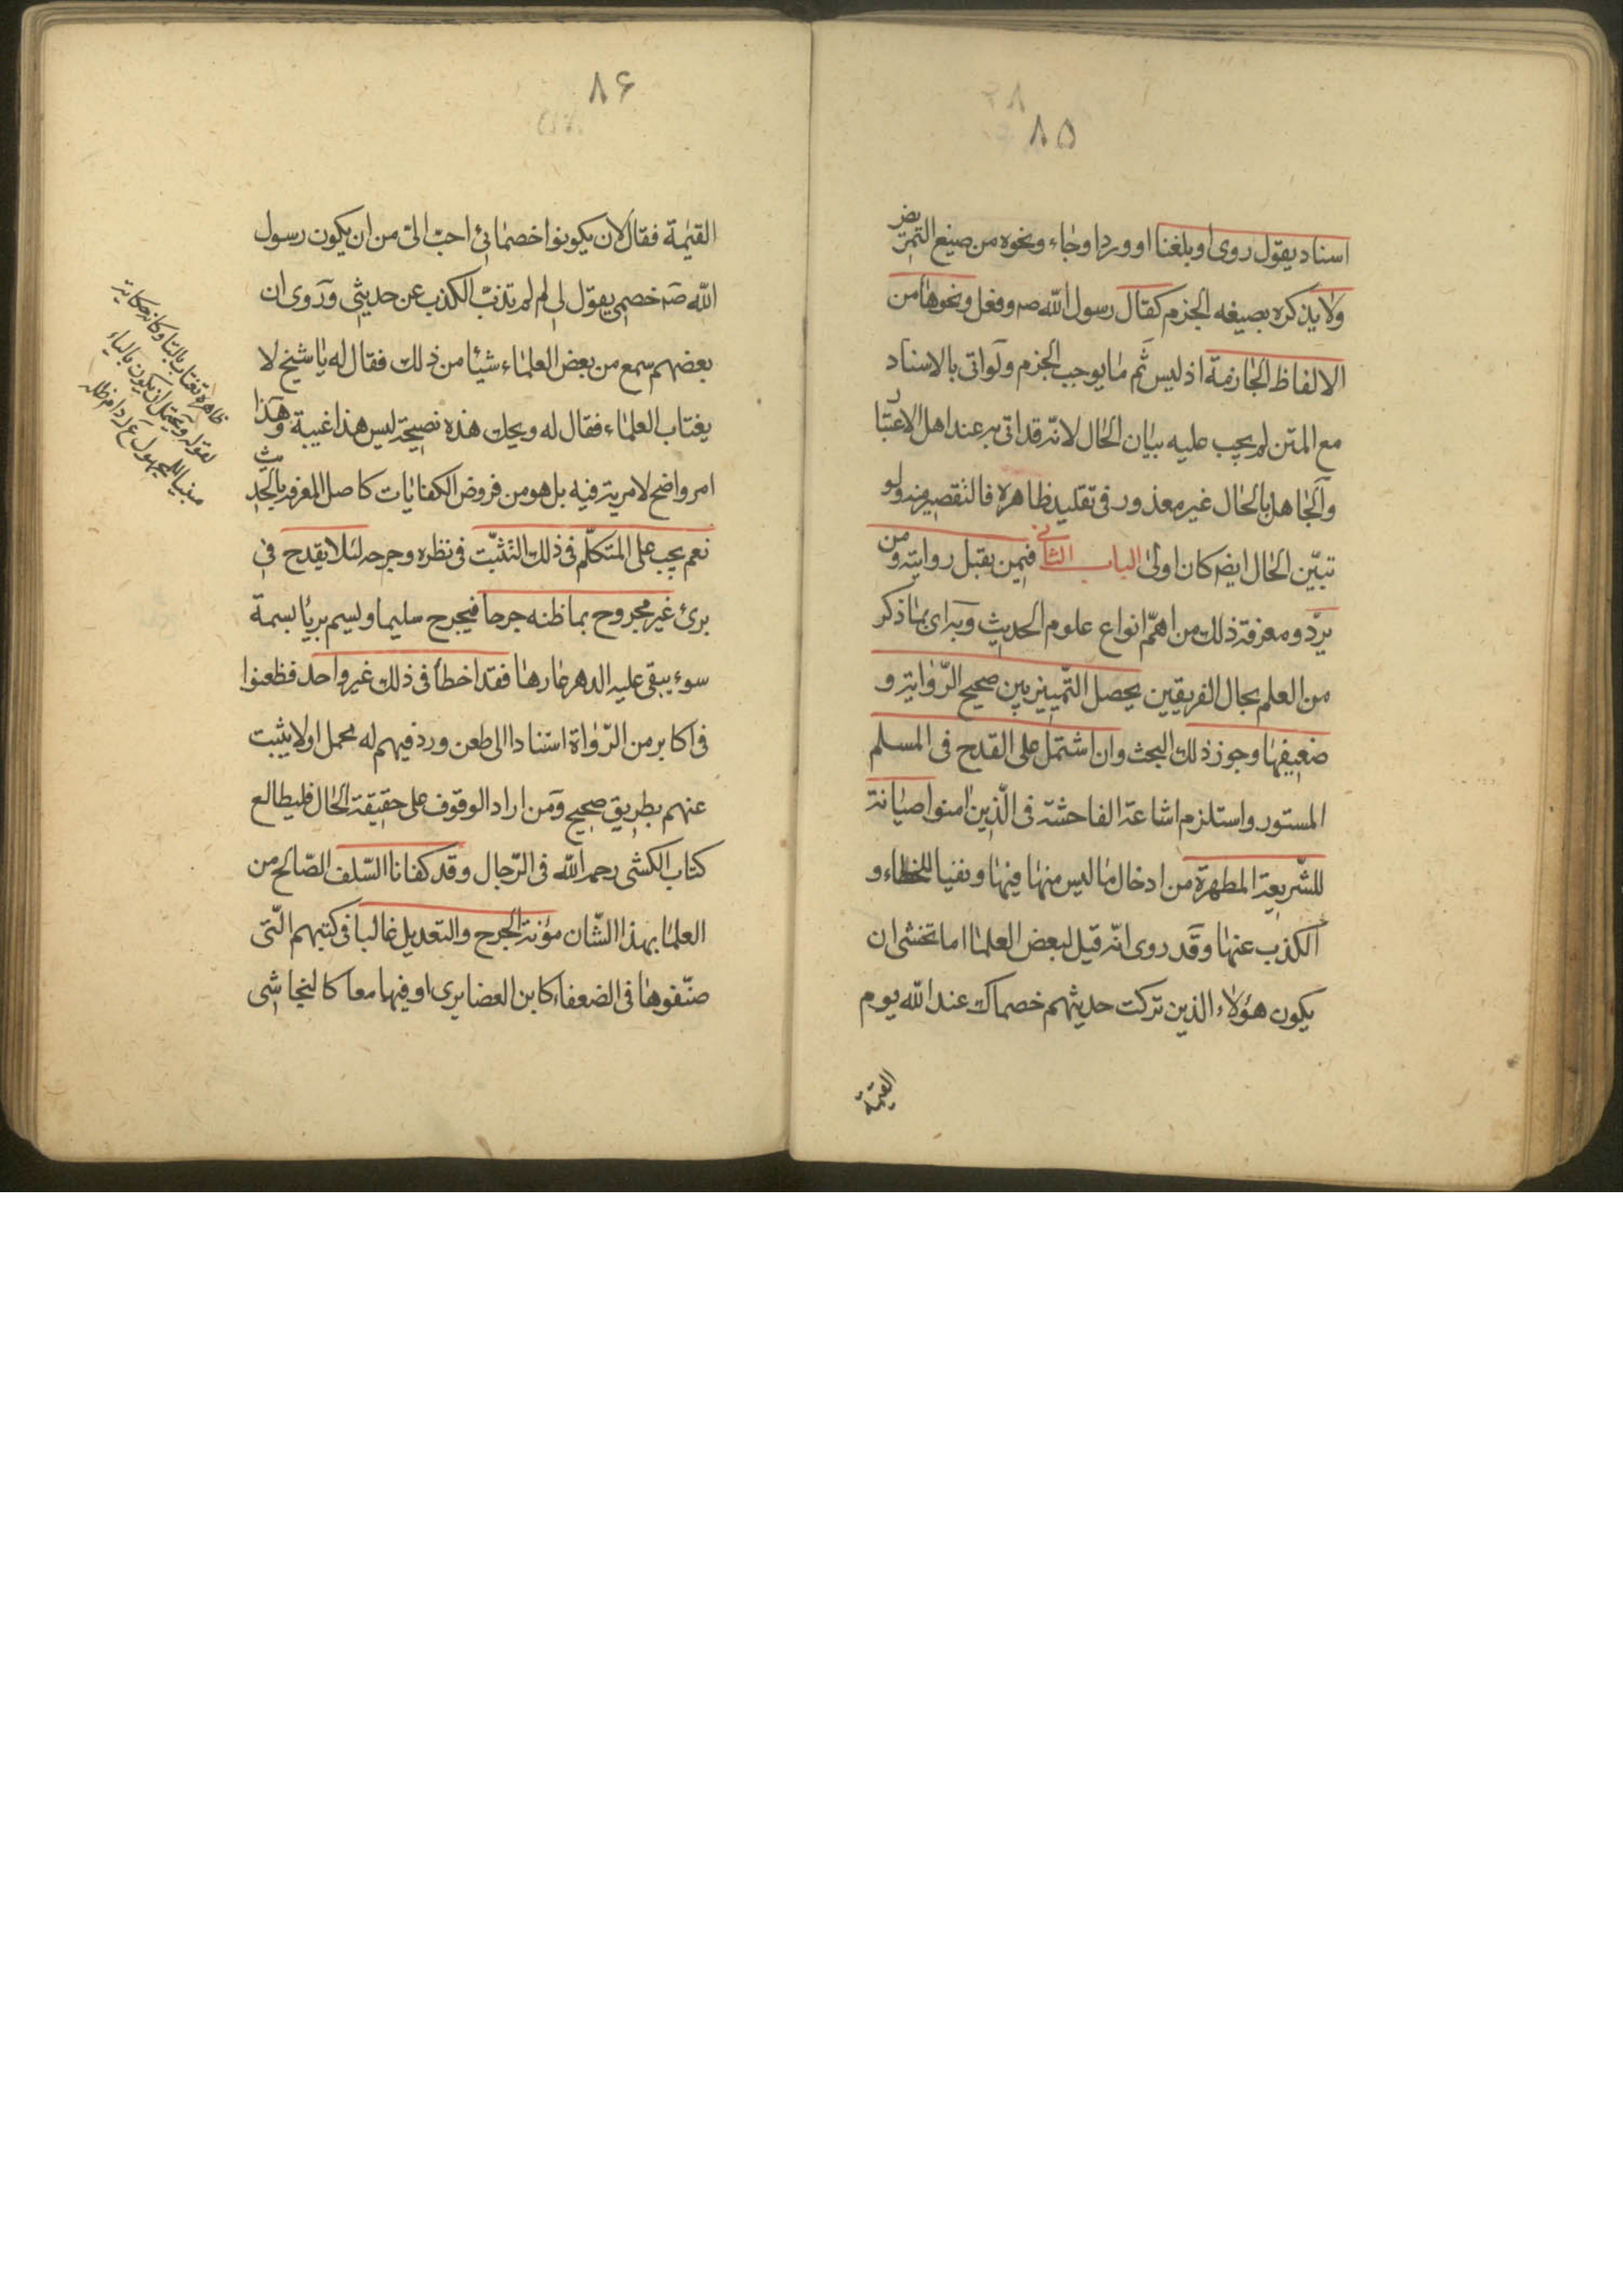 ٨۵
اسناد يقول روى او بلغنا او ورد او جاء ونحوه من صيغ التمريض
ولا يذكره بصيغه الجزم كقال رسول الله صہ وفعل ونحوها من
الالفاظ الجازمة اذ ليس ثم ما يوجب الجزم ولو اتى بالاسناد
مع المتن لم يجب عليه بيان الحال لانه قد اتى به عند اهل الاعتبار
والجاهل بالحال غير معذور فى تقليد ظاهره فالتقصير منه ولو
تبيّن الحال ايضہ كان اولى الباب الثانى فيمن يقبل روايته ومن
يردّ ومعرفة ذلك من اهمّ انواع علوم الحديث وبه اى بما ذكر
من العلم بحال الفريقين يحصل التّمييز بين صحيح الرّواية و
ضعيفها وجوز ذلك البحث وان اشتمل على القدح فى المسلم
المستور واستلزم اشاعة الفاحشة فى الّذين امنوا صيانة
للشّريعة المطهرة من ادخال ما ليس منها فيها ونفيا للخطاء و
الكذب عنها وقد روى انّه قيل لبعض العلما اما تخشى ان
يكون هؤلاء الذين تركت حديثهم خصماك عند الله يوم
القيمة
٨۶
القيمة فقال لان يكونوا خصمائى احبّ الىّ من ان يكون رسول
الله صہ خصمى يقول لى لم لم تذبّ الكذب عن حديثى وروى ان
بعضهم سمع من بعض العلماء شيئا من ذلك فقال له يا شيخ لا
يغتاب العلماء فقال له ويحك هذه نصيحة ليس هذا غيبة وهذا
امر واضح لا مرية فيه بل هو من فروض الكفايات كاصل المعرفة بالحديث
نعم يجب على المتكلّم فى ذلك التثبّت فى نظره وجرحه لئلا يقدح فى
برئ غير مجروح بما ظنه جرحا فيجرح سليما ويسم بريا بسمة
سوء يبقى عليه الدهر عارها فقد اخطأ فى ذلك غير واحد فطعنوا
فى اكابر من الرّواة استنادا الى طعن ورد فيهم له محمل اولا يثبت
عنهم بطريق صحيح ومن اراد الوقوف على حقيقة الحال فليطالع
كتاب الكشى رحمه الله فى الرّجال وقد كفانا السّلف الصّالح من
العلما بهذا الشّان مؤنة الجرح والتعديل غالبا فى كتبهم الّتى
صنّفوها فى الضعفاء كابن الغضايرى او فيها معا كالنجاشى
ظاهره تغتاب بالتا وكانه حكاية
لقوله ويحتمل ان يكون بالياء
مبنيا للمجهول